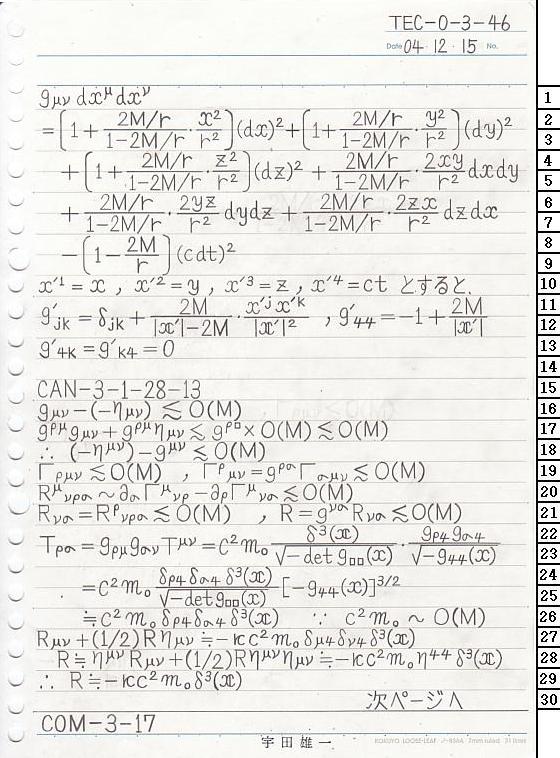 TEC-0-3-46
Date 04・12・15 No.
gμν dxμ dxν
=[1+ 2M/r/(1-2M/r)・x²/r²](dx)²+[1+ 2M/r/(1-2M/r)・y²/r²](dy)²
+[1+ 2M/r/(1-2M/r)・z²/r²](dz)²+ 2M/r/(1-2M/r)・2xy/r² dxdy
+ 2M/r/(1-2M/r)・2yz/r² dydz + 2M/r/(1-2M/r)・2zx/r² dzdx
-[1- 2M/r](cdt)²
x'¹=x , x'²=y , x'³=z , x'⁴=ct とすると、
g'jk=δjk+ 2M/(|x'|-2M)・x'ʲx'ᵏ/|x'|² , g'44=-1+ 2M/|x'|
g'4k=g'k4=0
CAN-3-1-28-13
gμν-(-ημν) ≲ O(M)
gρμ gμν+gρμ ημν ≲ gρ□×O(M) ≲ O(M)
∴ (-ημν)-gμν ≲ O(M)
Γρμν ≲ O(M) , Γρμν=gρσ Γσμν ≲ O(M)
Rμνρσ ~ ∂σ Γμνρ-∂ρ Γμνσ ≲ O(M)
Rνσ=Rρνρσ ≲ O(M) , R=gνσ Rνσ ≲ O(M)
Tρσ=gρμ gσν Tμν=c²m₀ δ³(x)/√-det g□□(x)・gρ4 gσ4/√-g44(x)
=c²m₀ δρ4 δσ4 δ³(x)/√-det g□□(x) [-g44(x)]^3/2
≒c²m₀ δρ4 δσ4 δ³(x) ∵ c²m₀ ~ O(M)
Rμν+(1/2)Rημν≒-κc²m₀ δμ4 δν4 δ³(x)
R≒ημν Rμν+(1/2)Rημν ημν≒-κc²m₀ η44 δ³(x)
∴ R≒-κc²m₀ δ³(x)
次ページへ
COM-3-17
宇田雄一
KOKUYO LOOSE-LEAF ノ-836A 7mm ruled 31 lines
1
2
3
4
5
6
7
8
9
10
11
12
13
14
15
16
17
18
19
20
21
22
23
24
25
26
27
28
29
30